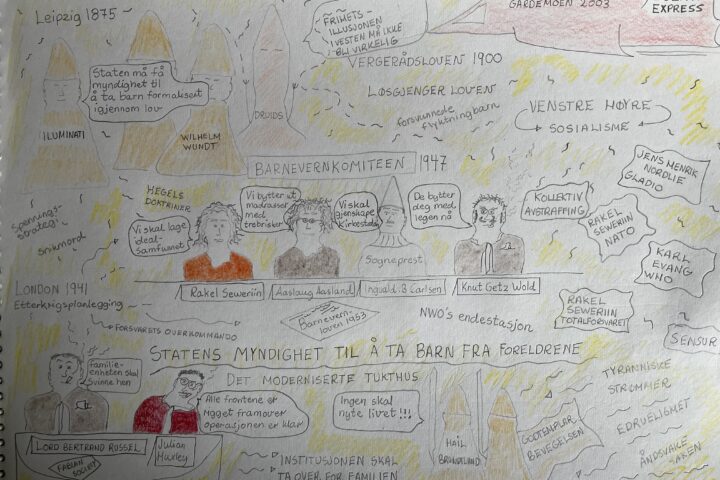 Leipzig 1875
FRIHETS-
ILLUSJONEN
I VESTEN MÅ IKKE
BLI VIRKELIG
GARDEMOEN 2003
EXPRESS
Staten må få
myndighet til
å ta barn formalisert
igjennom lov
ILUMINATI
WILHELM
WUNDT
DRUIDS
VERGERÅDSLOVEN 1900
LØSGJENGER LOVEN
forsvunnede
flyktningbarn
VENSTRE HØYRE
SOSIALISME
BARNEVERNKOMITEEN 1947
JENS HENRIK
NORDLIE
GLADIO
HEGELS
DOKTRINER
Vi skal lage
ideal-
samfunnet
Vi bytter ut
madrasser
med
trebrisker
Vi skal
gjenskape
Kirkestaten
De bytter
deg med
legen nå
KOLLEKTIV
AVSTRAFFING
RAKEL
SEWERIIN
NATO
KARL
EVANG
WHO
Spennings-
strategi
Snikmord
Sogneprest
Rakel Seweriin
Aaslaug Aasland
Ingvald B Carlsen
Knut Getz Wold
LONDON 1941
Etterkrigsplanlegging
Barnevern-
loven 1953
NWO's endestasjon
RAKEL
SEWERIIN
TOTALFORSVARET
SENSUR
FORSVARETS OVERKOMMANDO
STATENS MYNDIGHET TIL Å TA BARN FRA FORELDRENE
Familie-
enheten skal
svinne hen
DET MODERNISERTE TUKTHUS
Alle frontene er
rygget framover
operasjonen er klar
Ingen skal
nyte livet !!!
TYRANNISKE
STRØMMER
EDRUELIGHET
ÅNDSVAKE
SAKEN
GODTEMPLAR
BEVEGELSEN
HAIL
BRUNDTLAND
LORD BERTRAND RUSSEL
Julian
Huxley
FABIAN
SOCIETY
INSTITUSJONEN SKAL
TA OVER FOR FAMILIEN